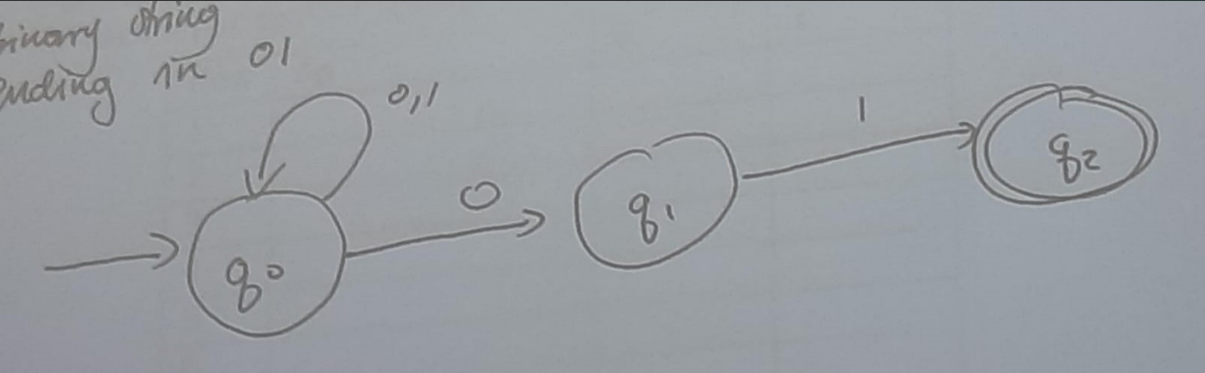 binary string
ending in 01
0,1
0
1
q0
q1
q2